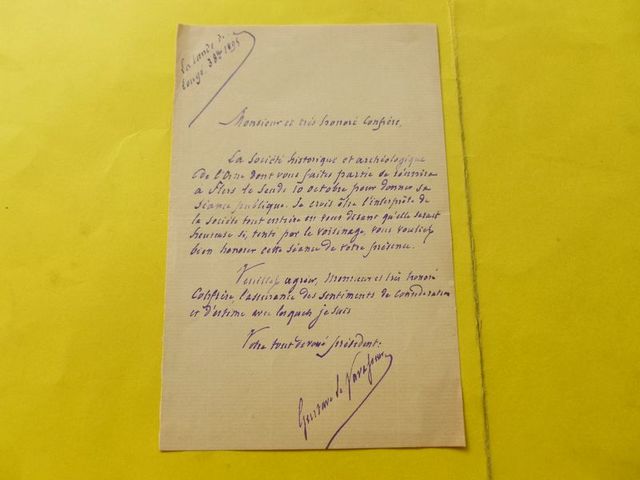 La Lande de
Lougé. 3 8bre 1895
Monsieur et très honoré Confrère,
La Société historique et archéologique
de l'Orne dont vous faites partie se réunira
à Flers le Jeudi 10 octobre pour donner sa
séance publique. Je crois être l'interprète de
la société tout entière en vous disant qu'elle serait
heureuse si, tenté par le voisinage, vous vouliez
bien honorer cette séance de votre présence.
Veuillez agréer, Monsieur et très honoré
Confrère, l'assurance des sentiments de considération
et d'estime avec lesquels je suis
Votre tout dévoué président:
Gustave Le Vavasseur